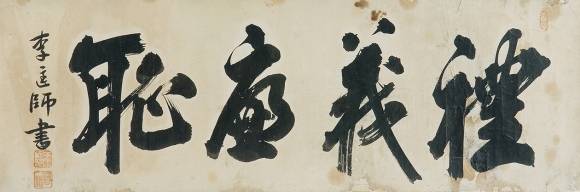 禮義廉恥
李匡師書